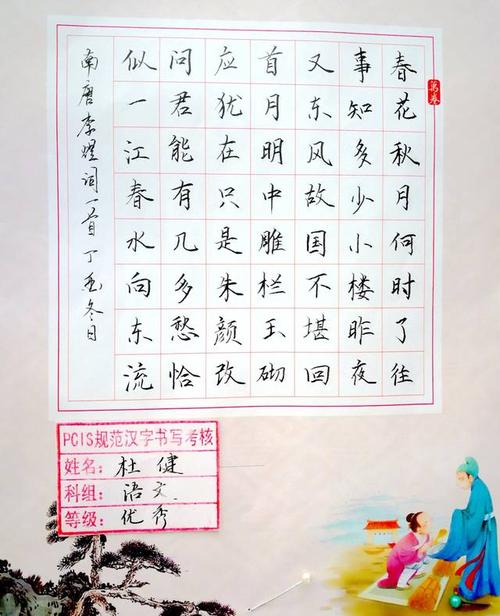 春花秋月何时了往
事知多少小楼昨夜
又东风故国不堪回
首月明中雕栏玉砌
应犹在只是朱颜改
问君能有几多愁恰
似一江春水向东流
南唐李煜词一首 丁亥冬日
PCIS规范汉字书写考核
姓名：杜健
科组：语文
等级：优秀